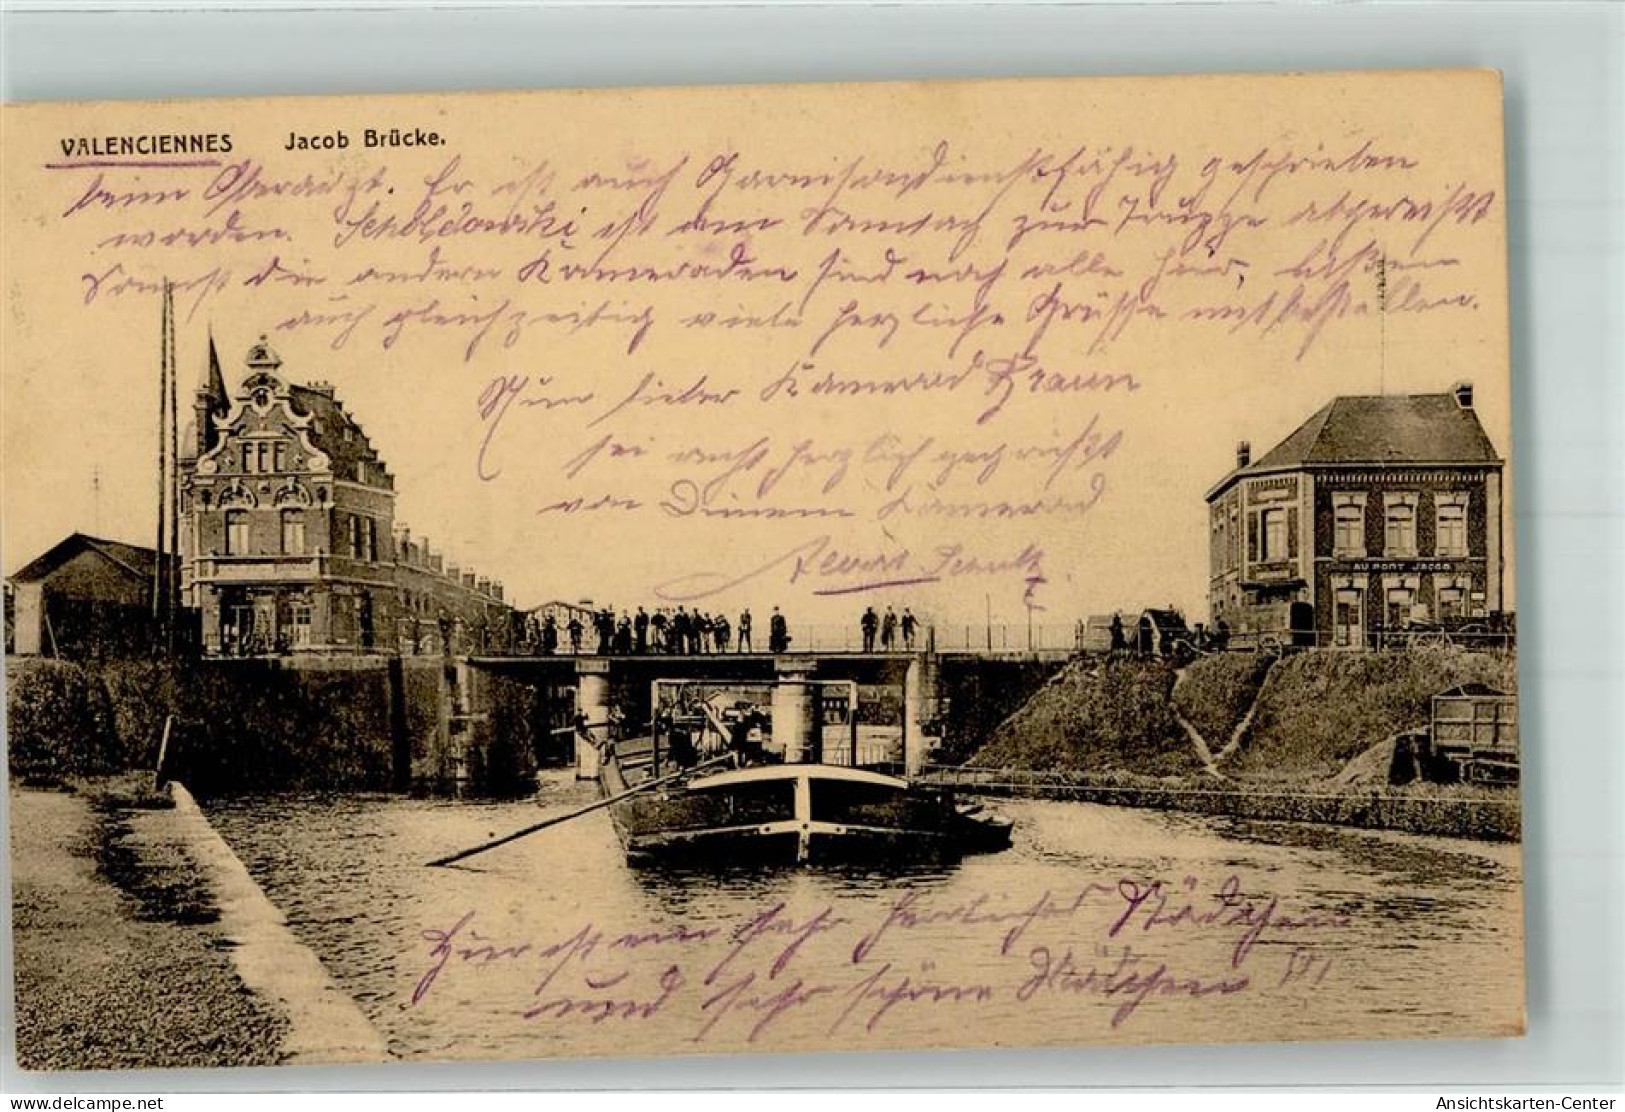 VALENCIENNES Jacob Brücke.
beim Oberarzt. Er ist auch Garnisondienstfähig geschrieben
worden. Scholdowski ist am Samstag zur Truppe abgereißt
Sonst die andern Kameraden sind noch alle hier, laßen
auch gleichzeitig viele herzliche Grüße mit bestellen.
Nun lieber Kamerad Braun
sei recht herzlich gegrüßt
von Deinem Kamerad
Albert Schulz
AU PONT JACOB
Hier ist ein sehr herrliches Städtchen
und sehr schöne Mädchen !!!
Ansichtskarten-Center